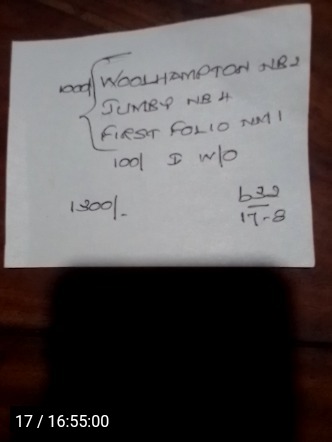 1000/ { WOOLHAMPTON NB2
JUMBY NB4
FIRST FOLIO NM1
100/ I W/O
1300/-
632
17-8
17 / 16:55:00